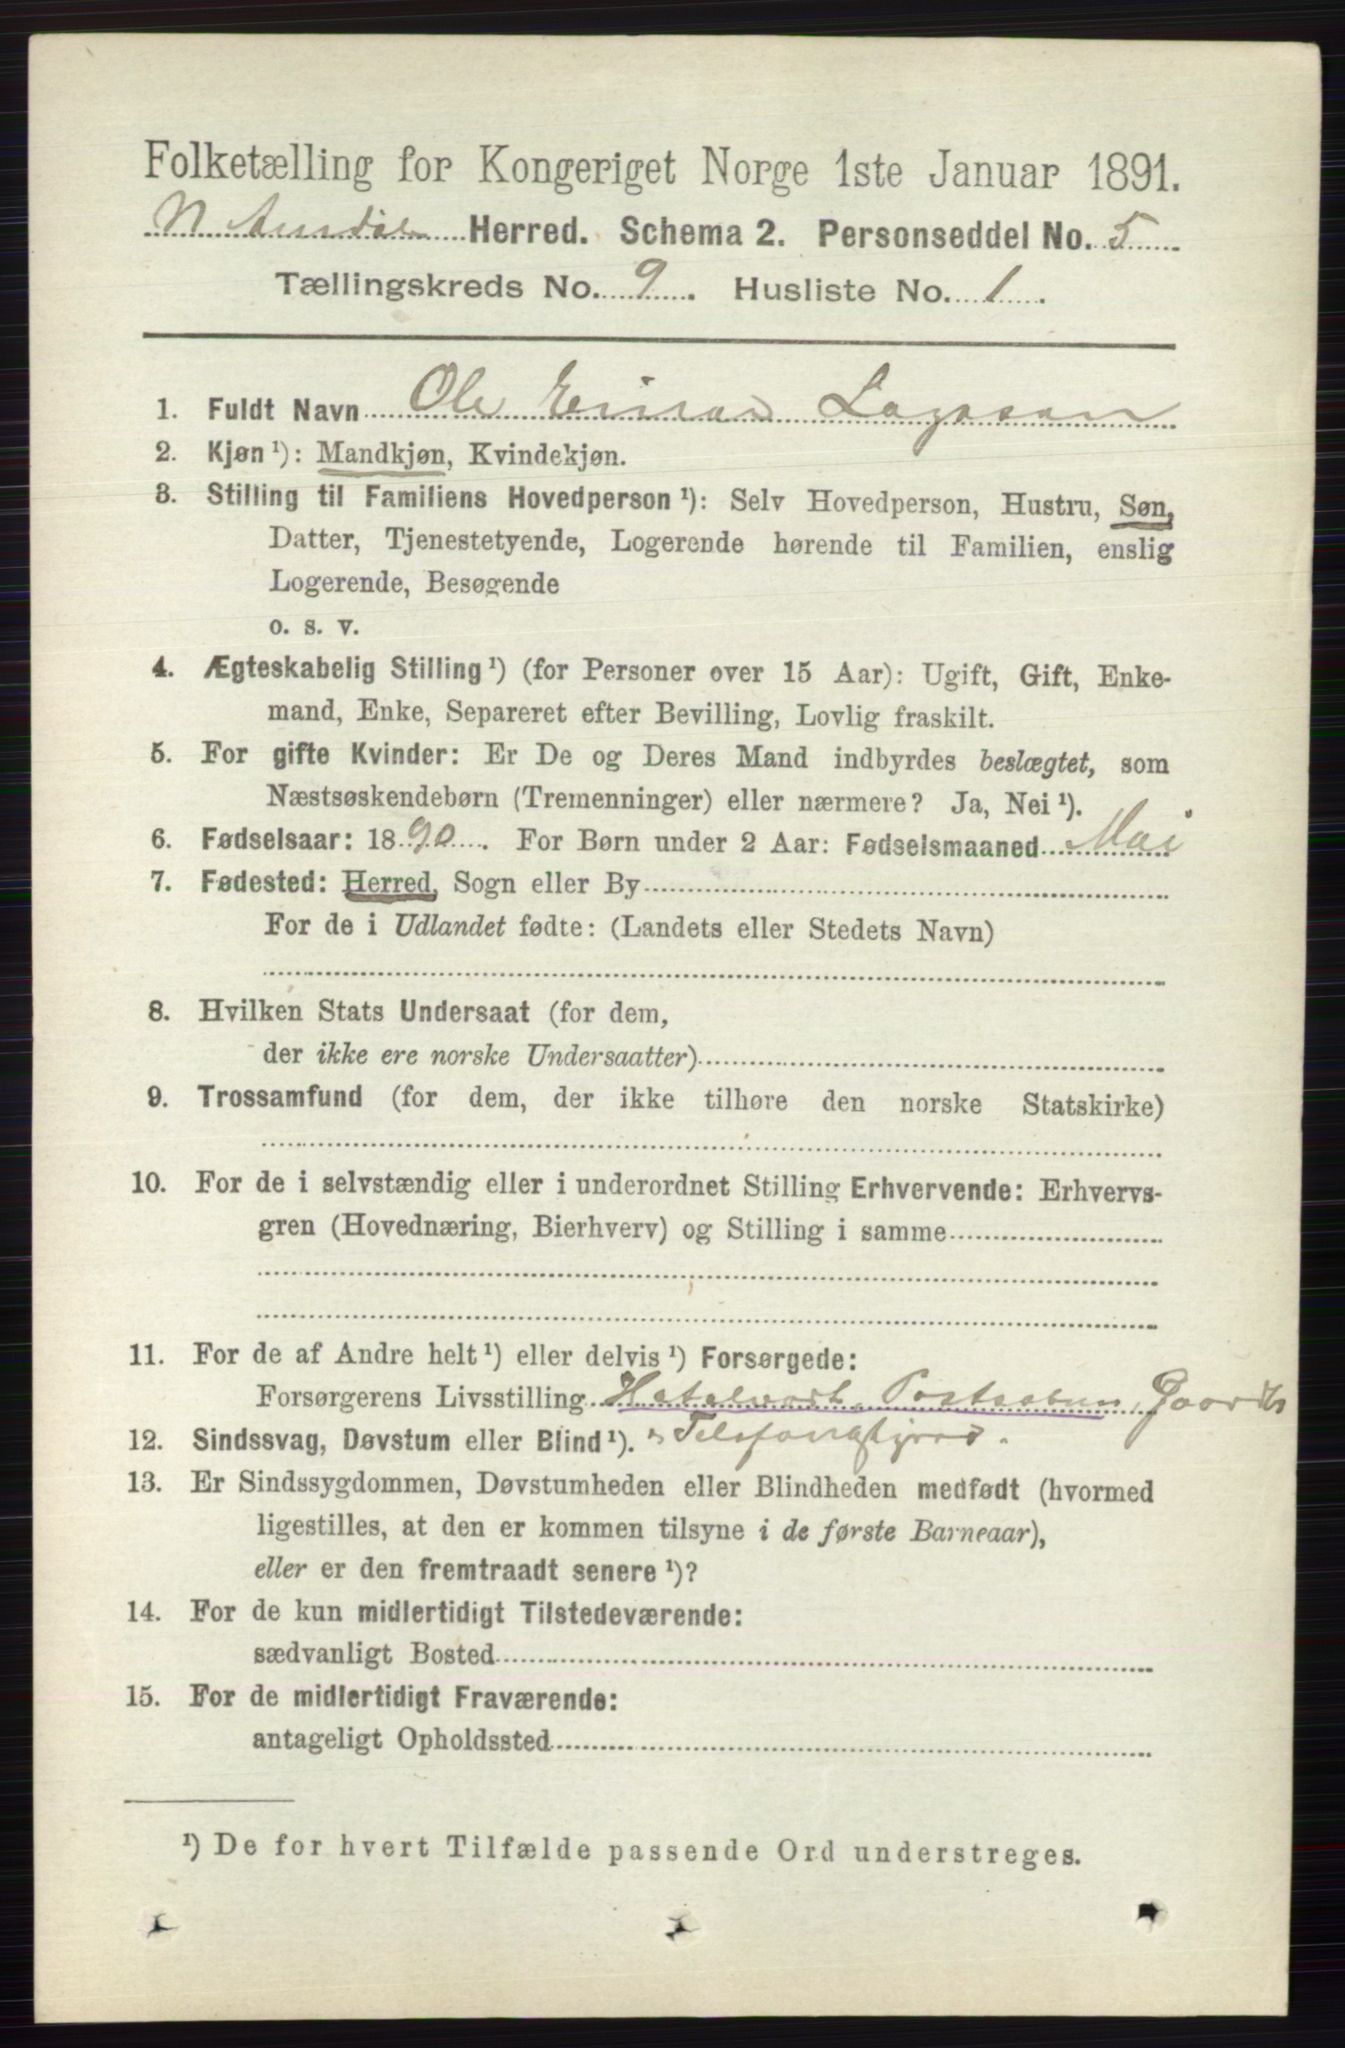 Folketælling for Kongeriget Norge 1ste Januar 1891.
N. Aurdal Herred. Schema 2. Personseddel No. 5
Tællingskreds No. 9. Husliste No. 1.
1. Fuldt Navn Ole Einar Lagesen
2. Kjøn¹): Mandkjøn, Kvindekjøn.
3. Stilling til Familiens Hovedperson¹): Selv Hovedperson, Hustru, Søn,
Datter, Tjenestetyende, Logerende hørende til Familien, enslig
Logerende, Besøgende
o. s. v.
4. Ægteskabelig Stilling¹) (for Personer over 15 Aar): Ugift, Gift, Enke-
mand, Enke, Separeret efter Bevilling, Lovlig fraskilt.
5. For gifte Kvinder: Er De og Deres Mand indbyrdes beslægtet, som
Næstsøskendebørn (Tremenninger) eller nærmere? Ja, Nei¹).
6. Fødselsaar: 1890. For Børn under 2 Aar: Fødselsmaaned Mai
7. Fødested: Herred, Sogn eller By
For de i Udlandet fødte: (Landets eller Stedets Navn)
8. Hvilken Stats Undersaat (for dem,
der ikke ere norske Undersaatter)
9. Trossamfund (for dem, der ikke tilhøre den norske Statskirke)
10. For de i selvstændig eller i underordnet Stilling Erhvervende: Erhvervs-
gren (Hovednæring, Bierhverv) og Stilling i samme
11. For de af Andre helt¹) eller delvis¹) Forsørgede:
Forsørgerens Livsstilling Hotelvært, Postaabn,
12. Sindssvag, Døvstum eller Blind¹).
13. Er Sindssygdommen, Døvstumheden eller Blindheden medfødt (hvormed
ligestilles, at den er kommen tilsyne i de første Barneaar),
eller er den fremtraadt senere¹)?
14. For de kun midlertidigt Tilstedeværende:
sædvanligt Bosted
15. For de midlertidigt Fraværende:
antageligt Opholdssted
¹) De for hvert Tilfælde passende Ord understreges.